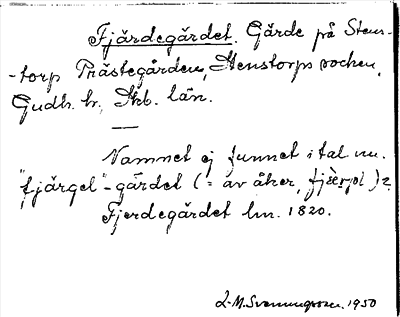 Fjärdegärdet. Gärde på Stens-
-torp Prästegården, Stenstorps socken,
Gudh. hr, Skb. län.
—
Namnet ej funnet i tal nu.
"fjärgel"-gärdet (= av åker, ) 2
Fjerdegärdet lm. 1820.
L-M. Svenungsson. 1950